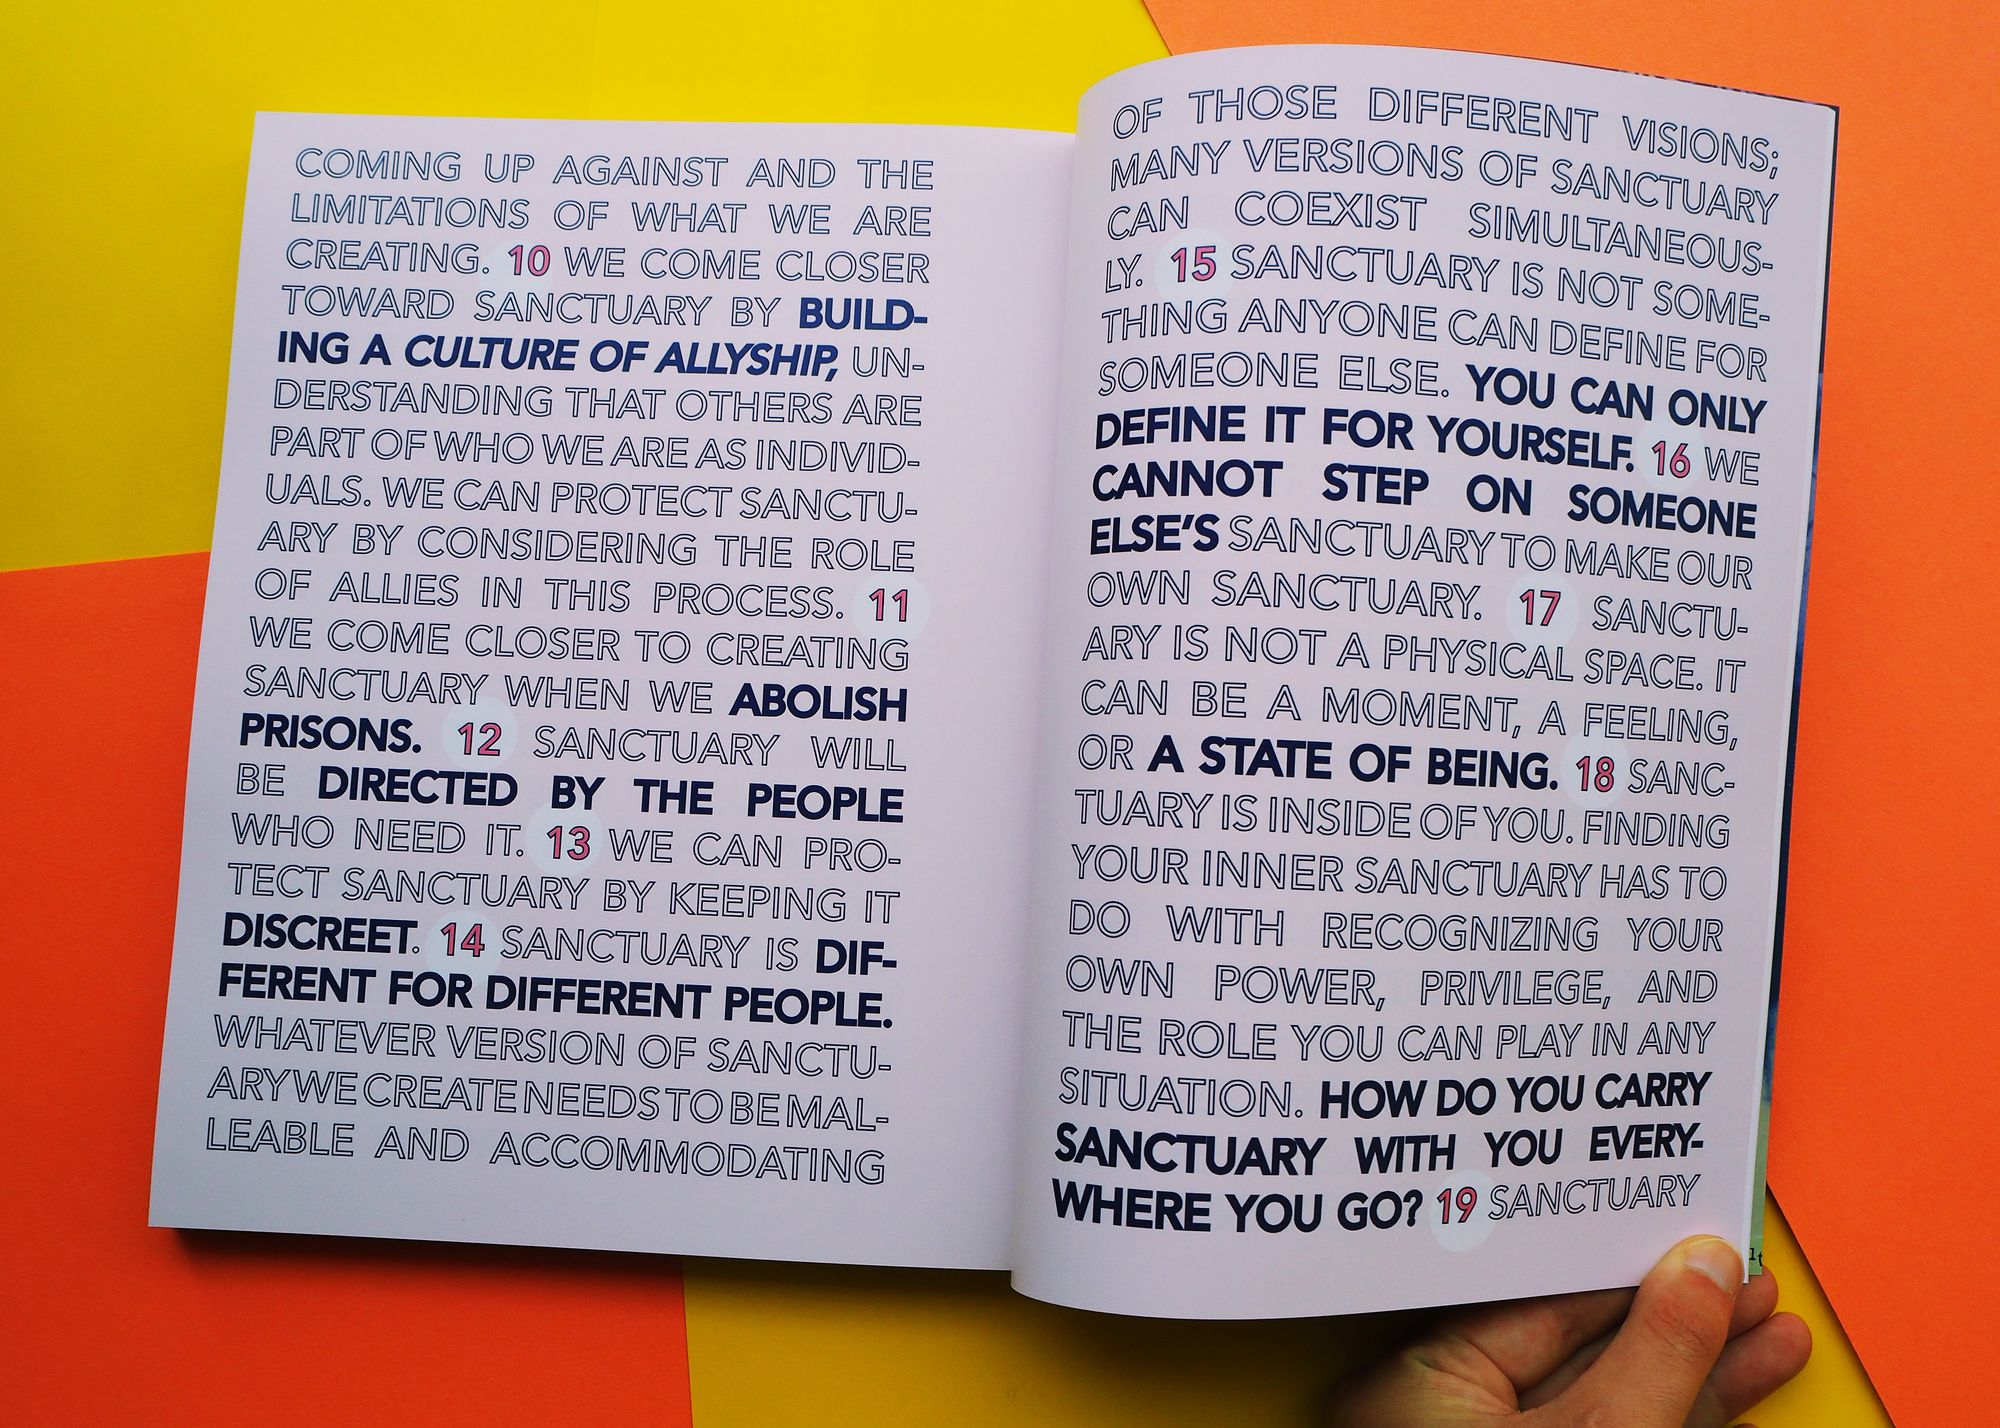 COMING UP AGAINST AND THE
LIMITATIONS OF WHAT WE ARE
CREATING. 10 WE COME CLOSER
TOWARD SANCTUARY BY BUILD-
ING A CULTURE OF ALLYSHIP, UN-
DERSTANDING THAT OTHERS ARE
PART OF WHO WE ARE AS INDIVID-
UALS. WE CAN PROTECT SANCTU-
ARY BY CONSIDERING THE ROLE
OF ALLIES IN THIS PROCESS. 11
WE COME CLOSER TO CREATING
SANCTUARY WHEN WE ABOLISH
PRISONS. 12 SANCTUARY WILL
BE DIRECTED BY THE PEOPLE
WHO NEED IT. 13 WE CAN PRO-
TECT SANCTUARY BY KEEPING IT
DISCREET. 14 SANCTUARY IS DIF-
FERENT FOR DIFFERENT PEOPLE.
WHATEVER VERSION OF SANCTU-
ARY WE CREATE NEEDS TO BE MAL-
LEABLE AND ACCOMMODATING
OF THOSE DIFFERENT VISIONS;
MANY VERSIONS OF SANCTUARY
CAN COEXIST SIMULTANEOUS-
LY. 15 SANCTUARY IS NOT SOME-
THING ANYONE CAN DEFINE FOR
SOMEONE ELSE. YOU CAN ONLY
DEFINE IT FOR YOURSELF. 16 WE
CANNOT STEP ON SOMEONE
ELSE'S SANCTUARY TO MAKE OUR
OWN SANCTUARY. 17 SANCTU-
ARY IS NOT A PHYSICAL SPACE. IT
CAN BE A MOMENT, A FEELING,
OR A STATE OF BEING. 18 SANC-
TUARY IS INSIDE OF YOU. FINDING
YOUR INNER SANCTUARY HAS TO
DO WITH RECOGNIZING YOUR
OWN POWER, PRIVILEGE, AND
THE ROLE YOU CAN PLAY IN ANY
SITUATION. HOW DO YOU CARRY
SANCTUARY WITH YOU EVERY-
WHERE YOU GO? 19 SANCTUARY